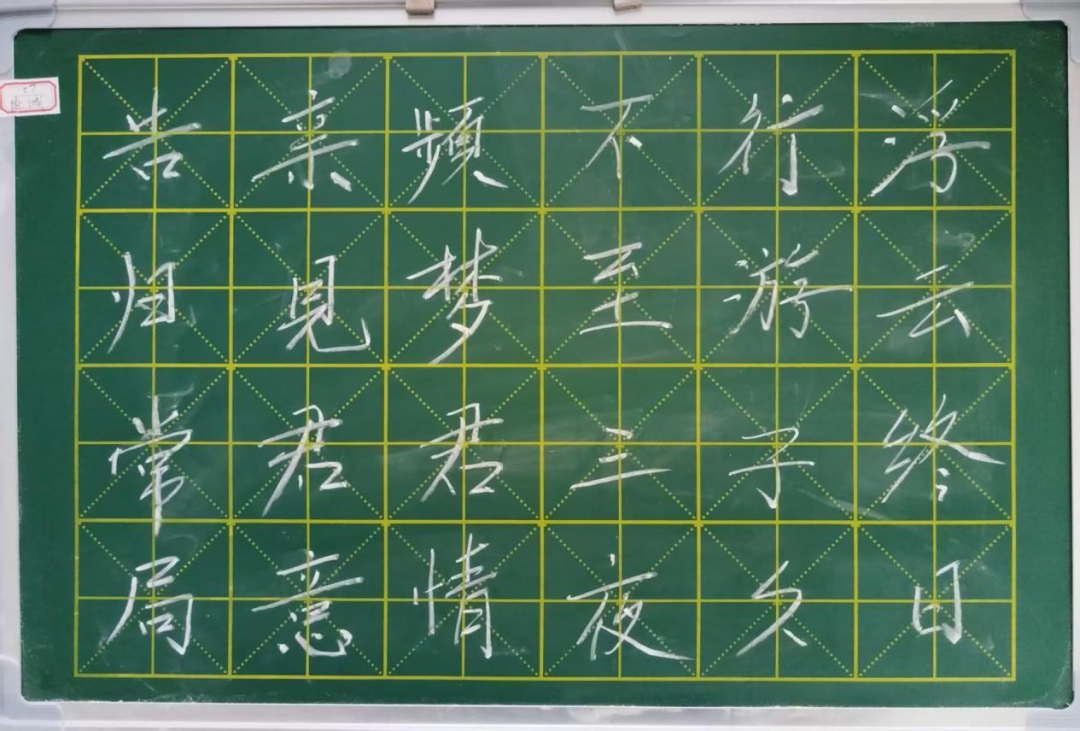 浮云终日
行游子久
不至三夜
頻梦君情
亲見君意
告归常局